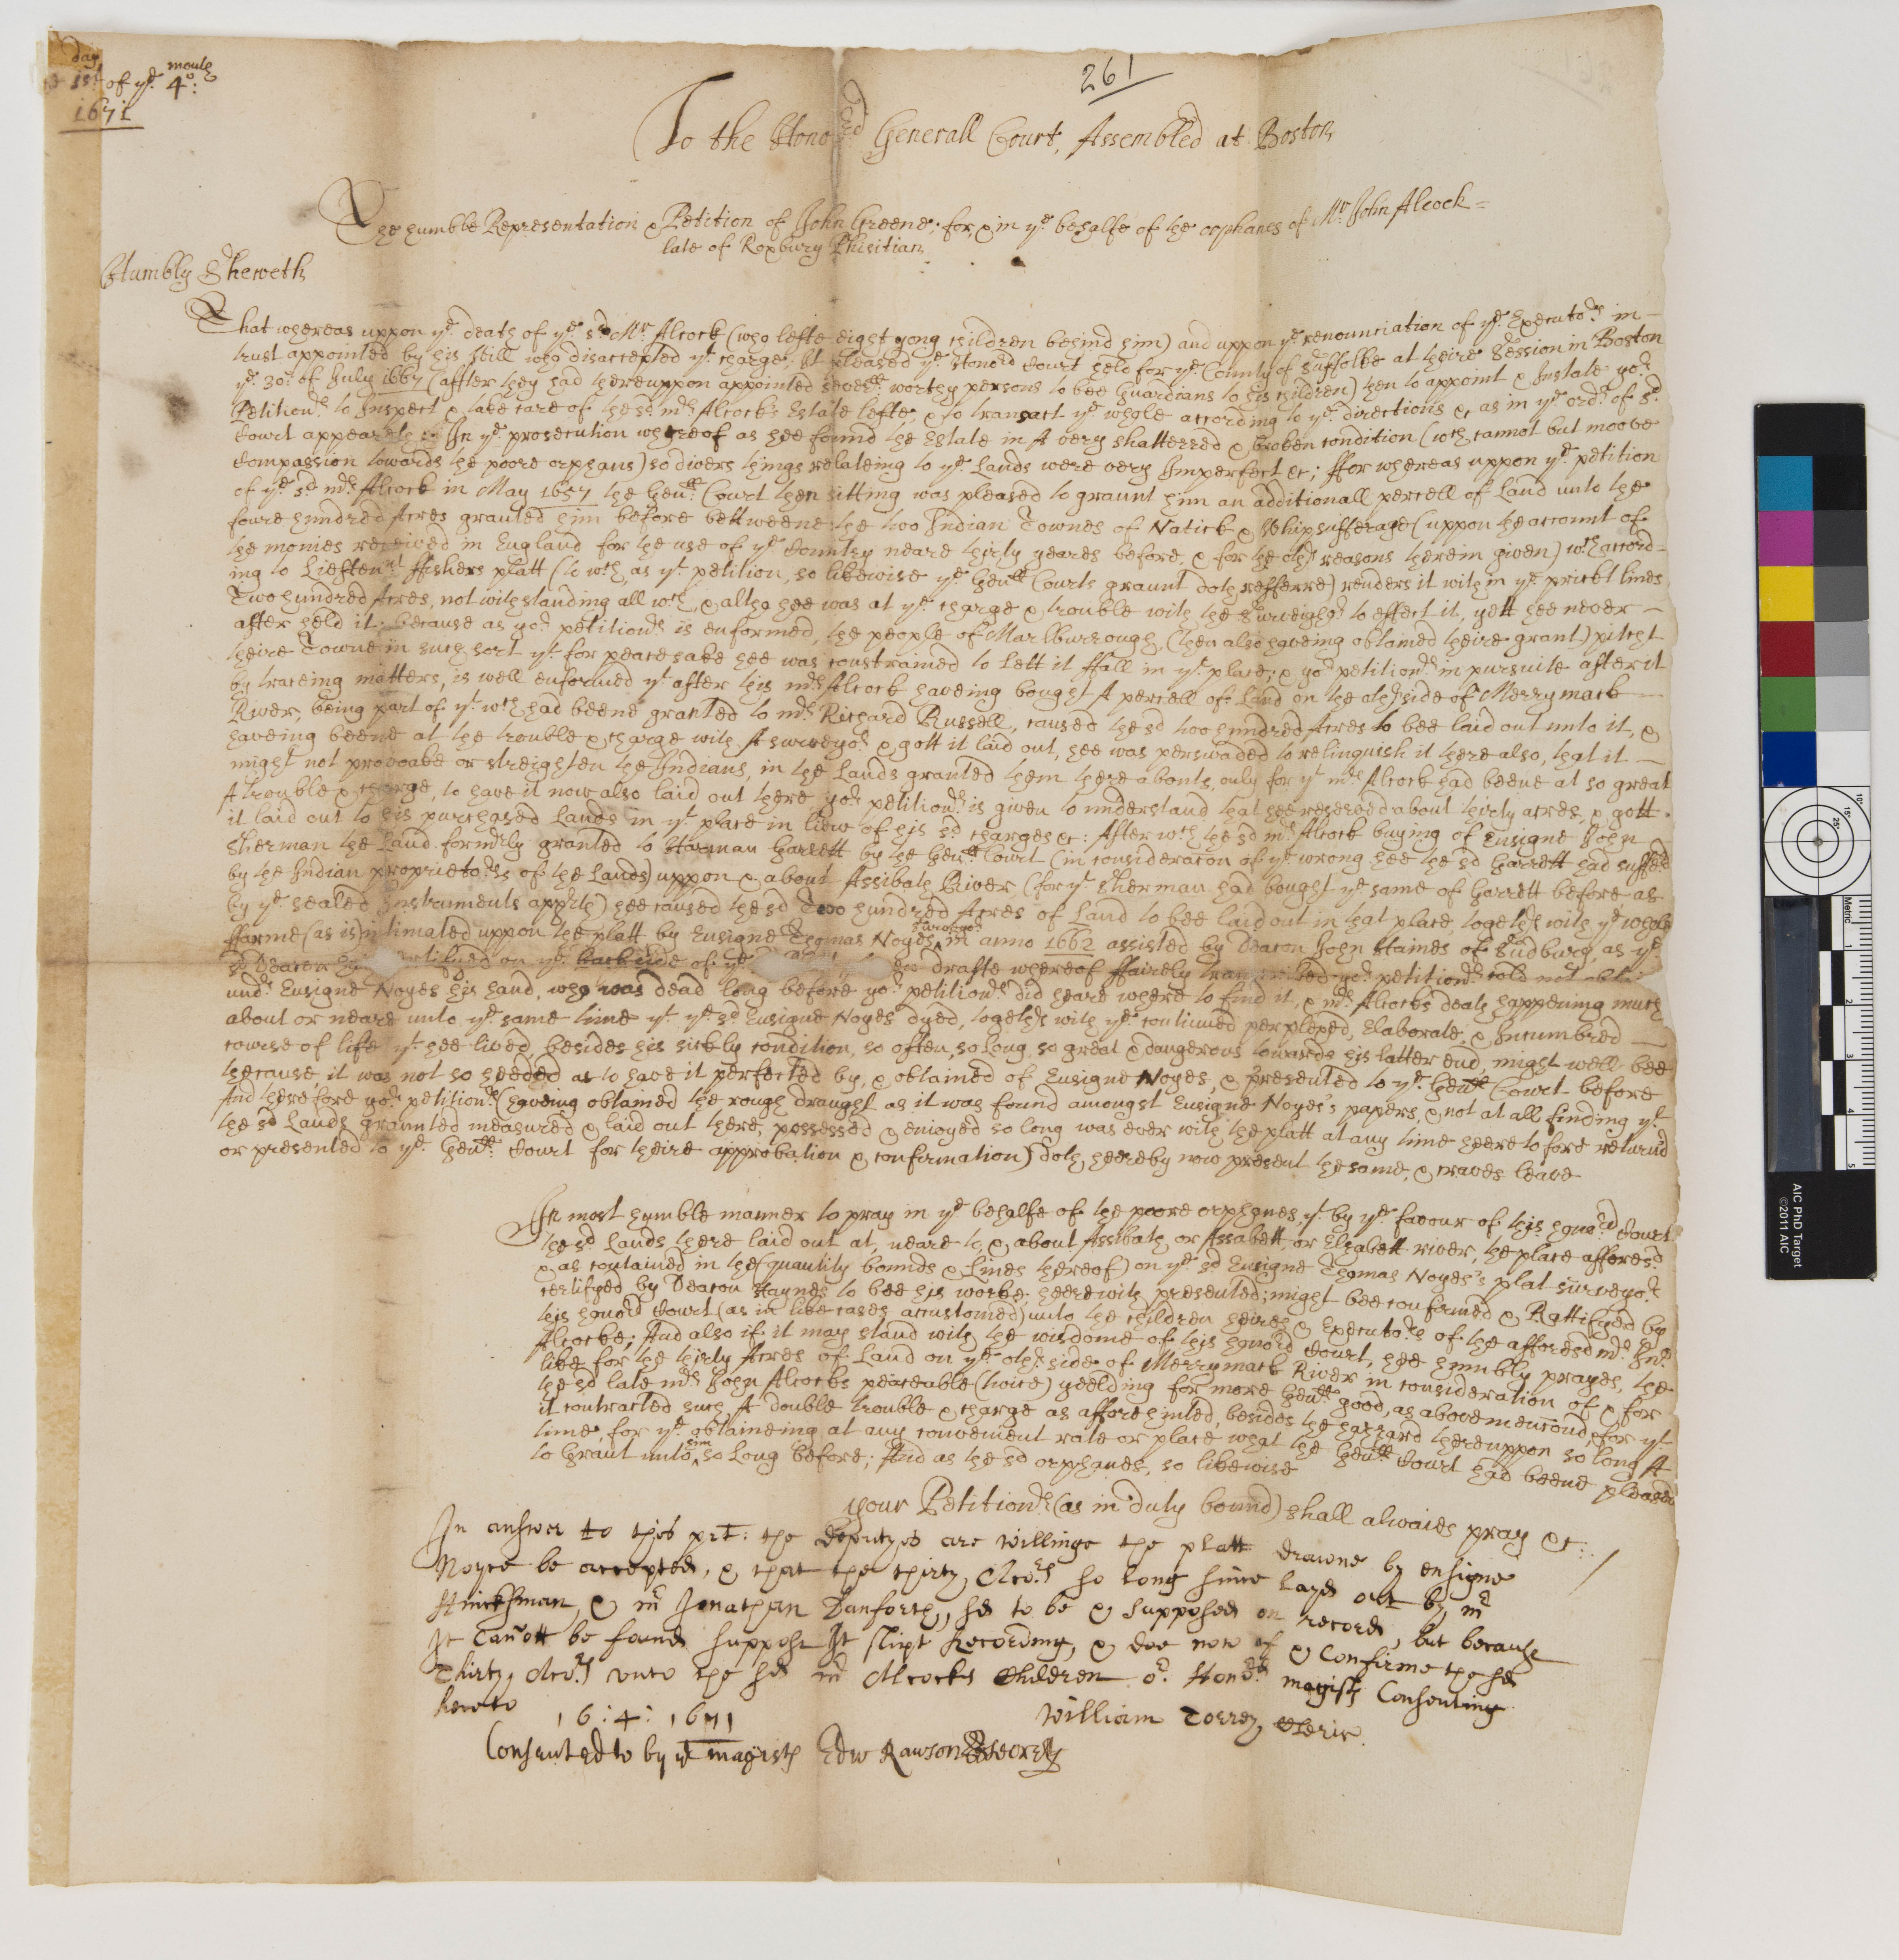 day month
1st of ye 4o:
1671
261
To the Honord Generall Court, Assembled at Boston
The humble Representation & Petition of John Greene; for, & in ye behalfe of the orphanes of Mr John Alcock =
late of Roxbury Phisitian
Humbly Sheweth
That whereas uppon ye death of ye sd Mr Alcock (who lefte eight yong children behind him) and uppon ye renountiation of ye Executors in-
trust appointed by his Will who disaccepted yt charge; It pleased ye Honord Court held for ye County of Suffolke at theire Session in Boston
ye 30th of July 1667 (affter they had thereuppon appointed severll worthy persons to bee Guardians to his children) then to appoint & Instate yor
Petitionr to Inspect & take care of the sd mr Alcock's Estate lefte, & to transact ye whole according to ye directions &c as in ye ordr of sd
Court appeareth In ye prosecution whereof as hee found the Estate in A very shatterred & broken condition (wch cannot but moove
Compassion towards the poore orphans) so divers things relateing to ye Lands were very Imperfect &c; ffor whereas uppon ye petition
of ye sd mr Alcock in May 1657 the Genll Court then sitting was pleased to graunt him an additionall percell of Land unto the
foure hundred Acres granted him before bettweene the two Indian Townes of Natick & Whipsufferage (uppon the account of
the monies received in England for the use of ye Country neare thirty yeares before, & for the othr reasons therein given) wch accord-
ing to Lieftennt ffishers platt (to wch as yt petition, so likewise ye Genll Courts graunt doth refferre) renders it with in ye prickt lines
Two hundred Acres, not withstanding all wch, & altho hee was at ye charge & trouble with the Surveighor to effect it, yett hee never -
after held it; because as yor petitionr is enformed, the people of Marlburrough, (then also haveing obtained theire grant) pitcht
theire Towne in such sort yt for peace sake hee was constrained to Lett it ffall in yt place; & yor petitionr in pursuite after it
by traceing matters, is well enformed yt after this mr Alcock haveing bought A percell of Land on the othr side of Merrymack
River, being part of yt wch had beene granted to mr Richard Russell, caused the sd two hundred Acres to bee laid out unto it, &
haveing beene at the trouble & charge with A surveyor & gott it laid out, hee was perswaded to relinquish it there also, that it -
might not provoake or streighten the Indians, in the Lands granted them there abouts, only for yt mr Alcock had beene at so great
A trouble & charge, to have it now also laid out there, yor petitionr is given to understand that hee reserved about thirty acres, & gott
it laid out to his purchased Lands in yt place in liew of his sd charges &c: After wch the sd mr Alcock buying of Ensigne John
Sherman the Land formrly granted to Harman Garrett by the Genll Court (in consideracon of ye wrong hee the sd Garrett had suffred
by the Indian proprietors of the Lands) uppon & about Assibath River (for yt Sherman had bought ye same of Garrett before as
by ye sealed Instruments appeth) hee caused the sd Two hundred Acres of Land to bee laid out in that place, togethr with ye whole
ffarme (as is) intimated uppon the platt by Ensigne Thomas Noyes surveyor in anno 1662 assisted by Deacon John Haines of Sudbury, as ye
sd Deacon on ye backside of ye drafte whereof ffairely petitionr cold not
undr Ensigne Noyes his hand, who was dead long before yor petitionr did heare where to find it, & mr Alcocks death happening much
about or neare unto ye same time yt ye sd Ensigne Noyes dyed, togethr with ye continued perplexed, Elaborate, & Incumbred -
course of life yt hee lived, besides his sickly condition, so often, so long, so great & dangerous towards his latter end, might well bee
the cause it was not so heeded as to have it perfected by, & obtained of Ensigne Noyes, & presented to ye Genll Court before
And therefore yor petitionr (haveing obtained the rough draught as it was found amongst Ensigne Noyes's papers, & not at all finding yt
the sd Lands graunted measured & laid out there, possessed & enioyed so long was ever with the platt at any time heere to fore returnd
or presented to ye Genll Court for theire approbation & confirmation) doth heereby now present the same, & craves leave
In most humble manner to pray in ye behalfe of the poore orphanes, yt by ye favour of this honord Court
the sd Lands there laid out at, neare to, & about Assibath or Assabett, or Elzabett river, the place afforesd
& as contained in the (quantity bounds & Lines thereof) on ye sd Ensigne Thomas Noyes's plat surveyor
certifyed by Deacon Haynes to bee his worke, heerewith presented; might bee confirmed & Rattifyed by
this honord Court (as in like cases accustomed) unto the children heires & Executors of the afforesd mr Jno
Alcocke; And also if it may stand with the wisdome of this honord Court, hee humbly prayes, the
like for the thirty Acres of Land on ye othr side of Merrymack River in consideration of & for
the sd late mr John Alcocks peaceable (twice) yeelding for more Genll good, as abovemencond, & for yt
it contracted such A double trouble & charge as afforehinted, besides the hazzard thereuppon so long A
time, for ye obtaineing at any convenient rate or place what the Genll Court had beene pleased
to Graunt unto him so Long before; And as the sd orphanes, so likewise
your Petitionr (as in duty bound) shall alwaies pray &c:
In answer to this pet: the deputyes are willinge the platt drawne by ensigne
Noyce be accepted, & that the thirty Acors so long since layd out by mr
Hincksman & mr Jonathan Danforth, sd to be & supposed on record, but because
It cannott be found suppose It slipt Recording, & doe now of & Confirme the sd
Thirty Acors vnto the sd mr Alcocks Children or Honord magists Consenting
hereto
16:4:1671
William Torrey Cleric.
Consented to by ye magists Edw Rawson Secrety